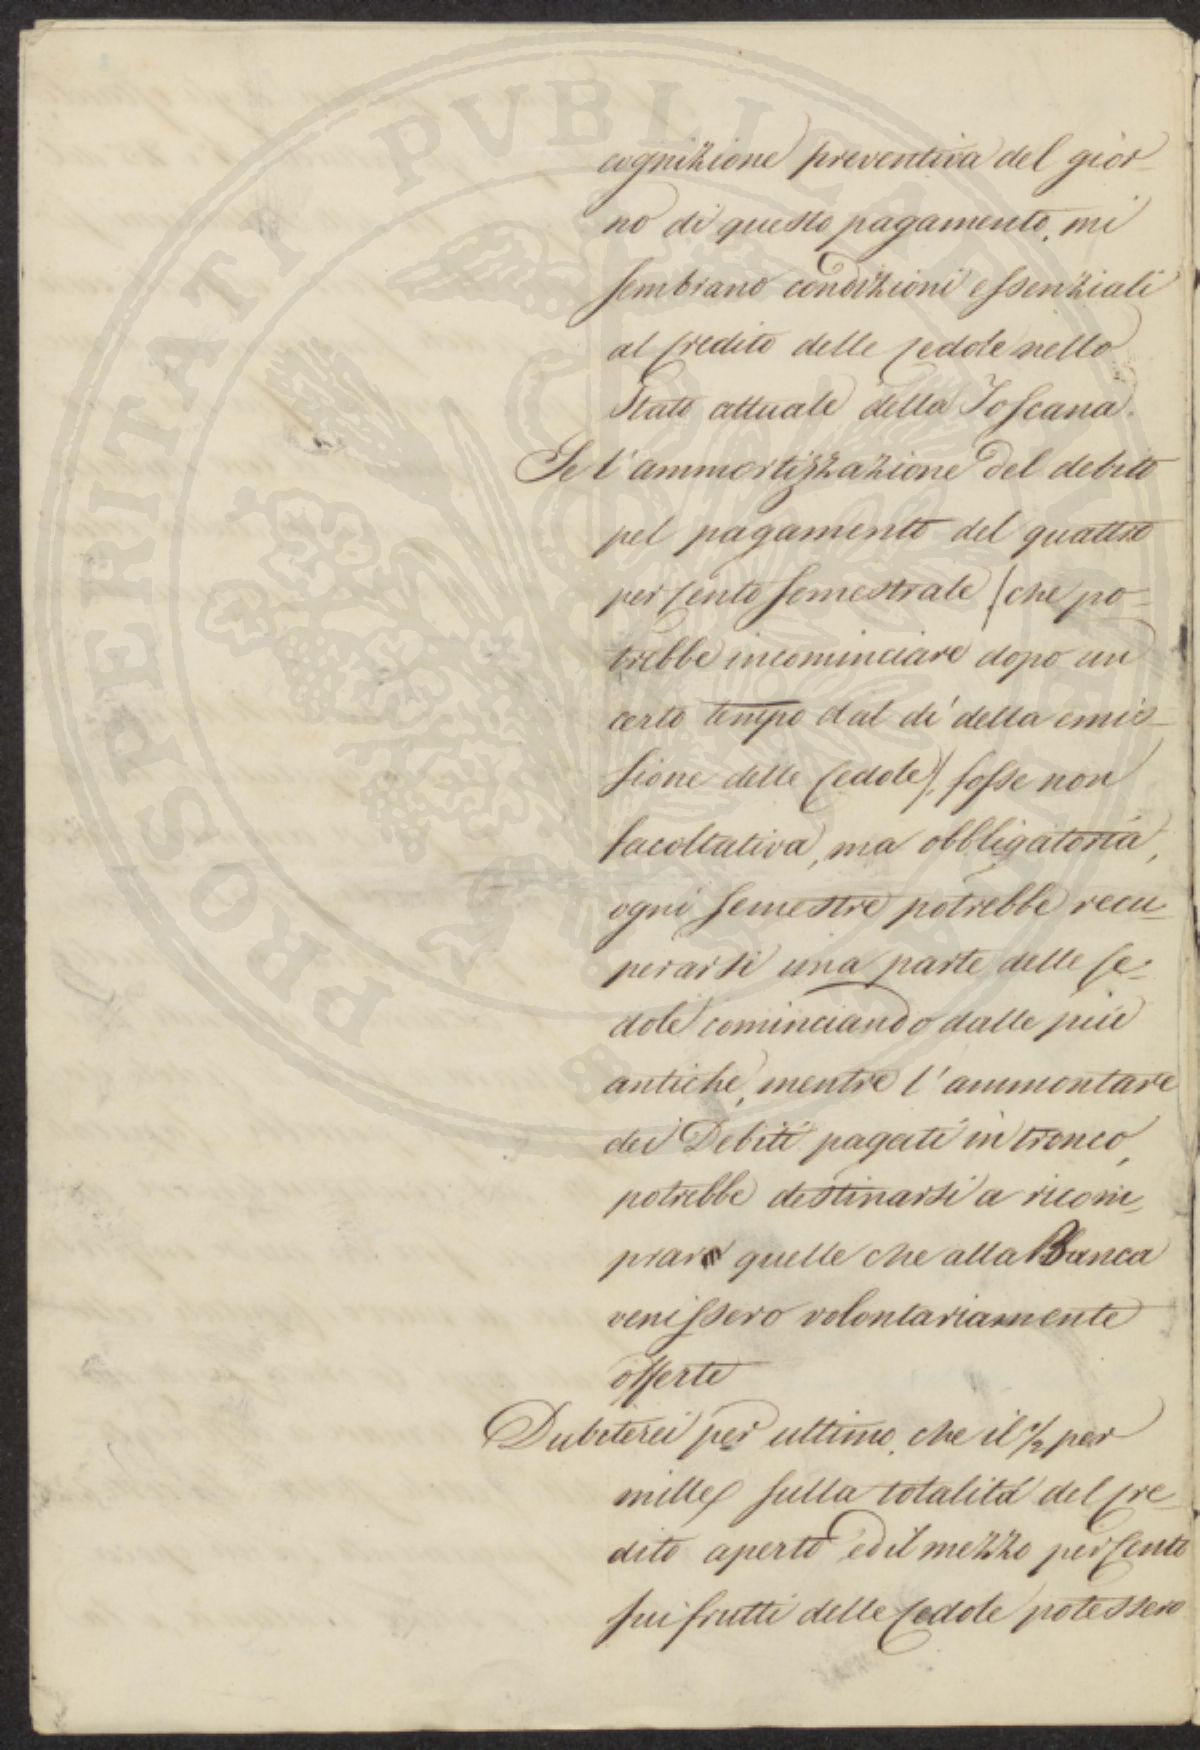 PROSPERITATI PUBLICAE AUGENDAE
cognizione preventiva del gior-
no di questo pagamento, mi
sembrano condizioni essenziali
al Credito delle Cedole nello
Stato attuale della Toscana.
Se l'ammortizzazione del debito
pel pagamento del quattro
per Cento Semestrale (che po-
trebbe incominciare dopo un
certo tempo dal dì della emis-
sione delle Cedole), fosse non
facoltativa, ma obbligatoria,
ogni Semestre potrebbe recu-
perarsi una parte delle Ce-
dole cominciando dalle più
antiche, mentre l'ammontare
dei Debiti pagati in tronco,
potrebbe destinarsi a ricom-
prare quelle che alla Banca
venissero volontariamente
offerte
Dubiterei per ultimo, che il 1/2 per
mille sulla totalità del Cre-
dito aperto ed il mezzo per Cento
sui frutti delle Cedole potessero